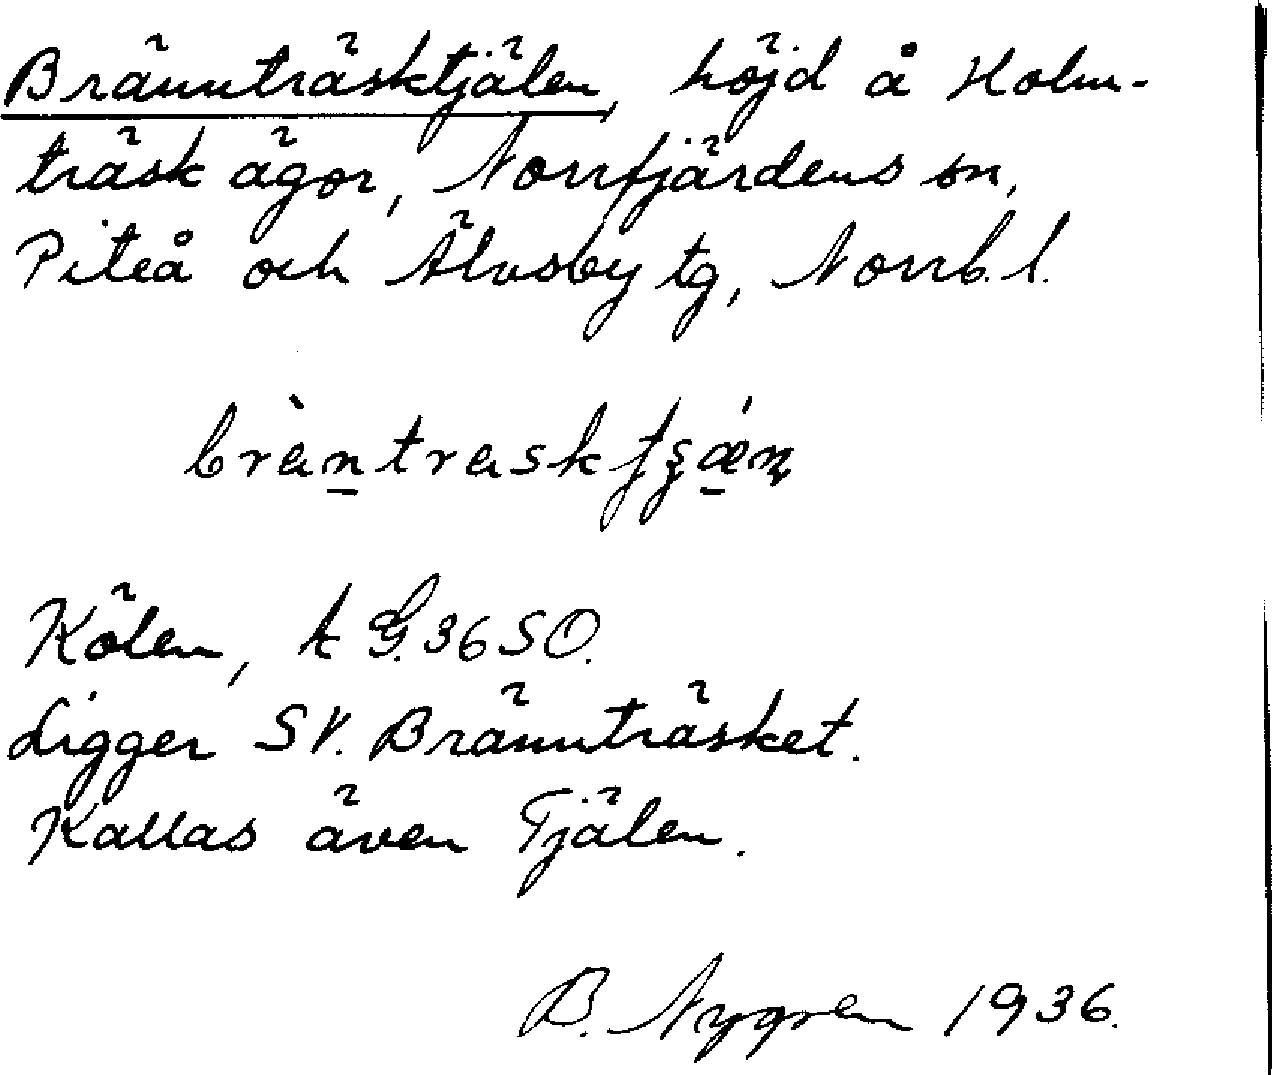 Brännträsktjälen, höjd å Holm-
träsk ägor, Norrfjärdens sn,
Piteå och Älvsby tg, Norrb. l.
Kölen, k G. 36 SO.
Ligger SV. Brännträsket.
Kallas även Tjälen.
B. Nygren 1936.